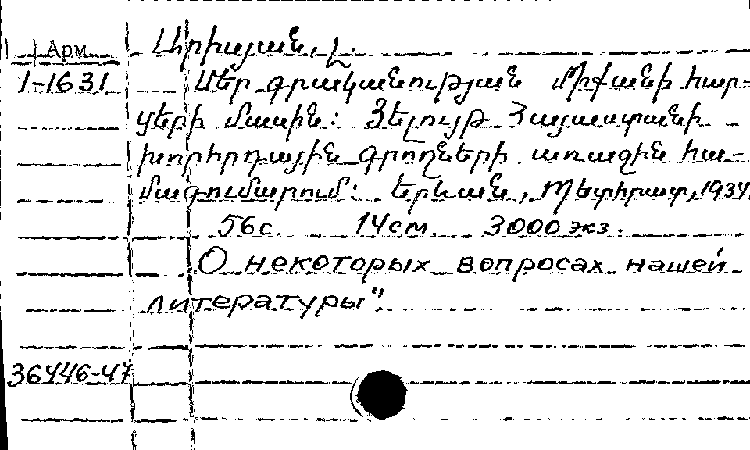 Արիայան, Հ.
Арм
1-1631
Մեր գրականության մի քանի հար-
ցերի մասին: Զեկույց Հայաստանի
խորհրդային գրողների առաջին հա-
մագումարում: Երևան, Պետհրատ, 1934.
56с. 14см. 3000 экз.
О некоторых вопросах нашей
литературы"
36446-47